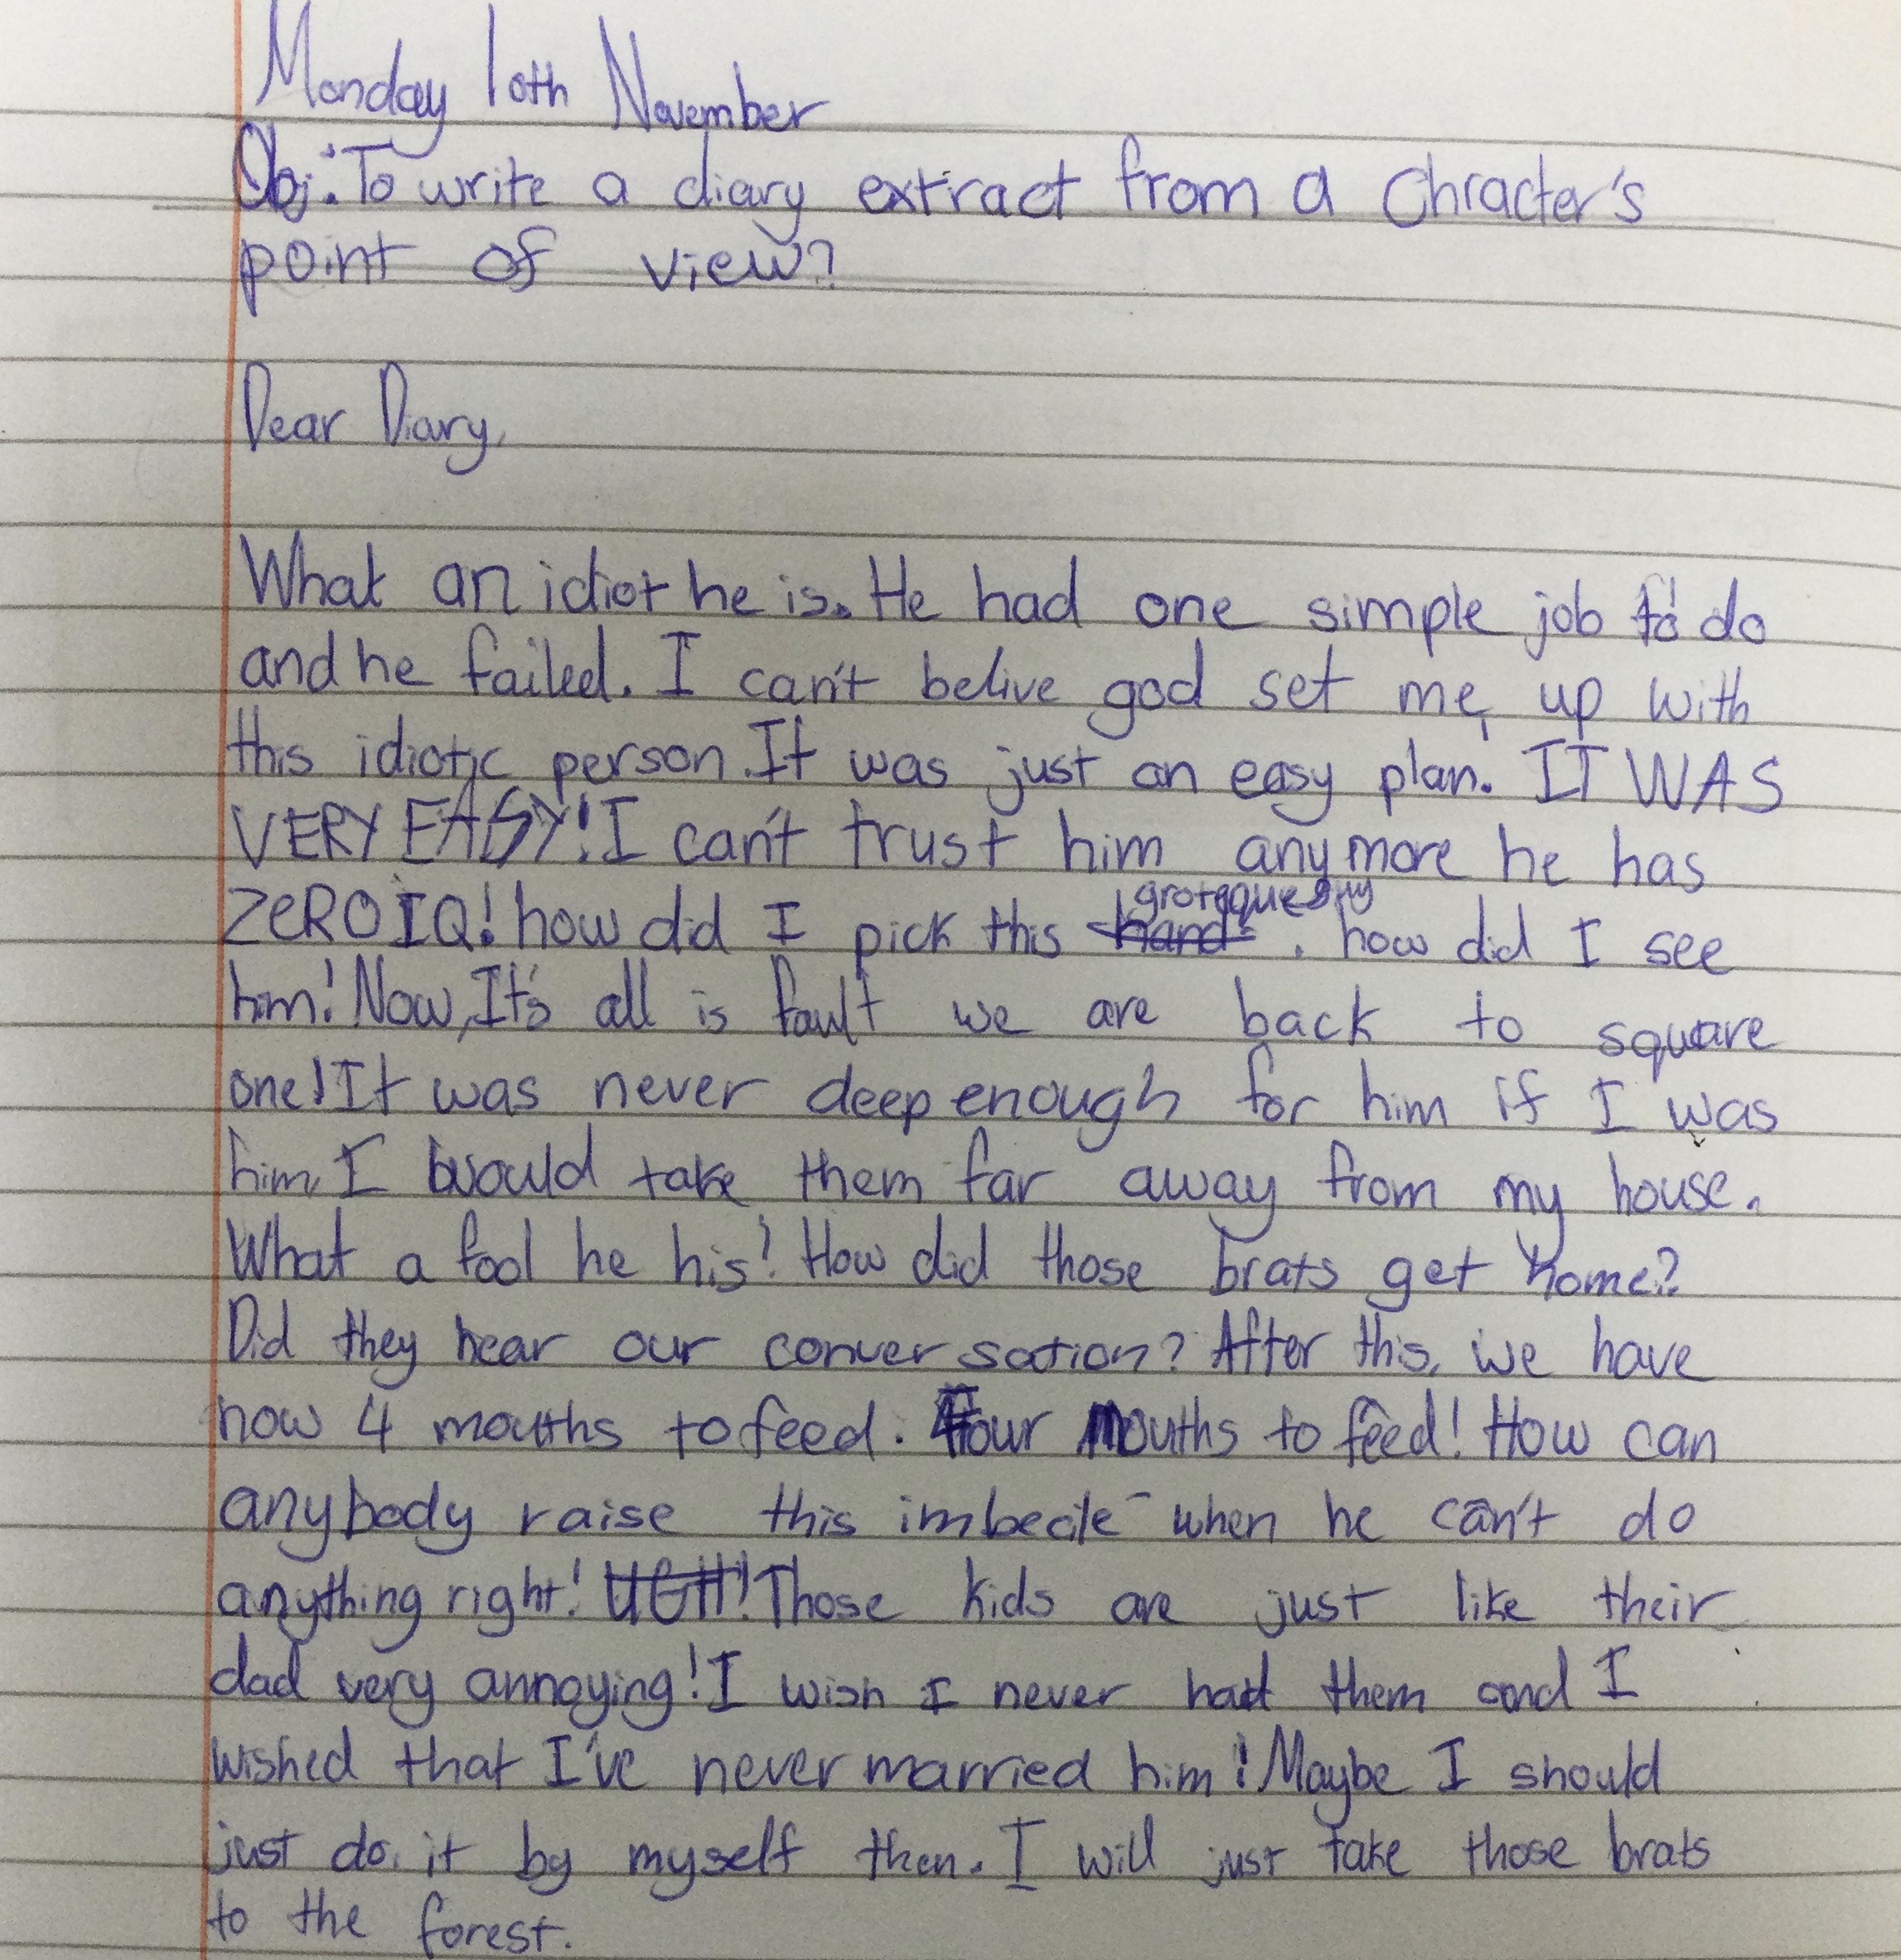 Monday 10th November
Obj: To write a diary extract from a Chracter's
point of view?
Dear Diary,
What an idiot he is. He had one simple job to do
and he failed. I can't belive god set me up with
this idiotic person. It was just an easy plan. IT WAS
VERY EASY! I can't trust him anymore he has
ZeRO IQ! how did I pick this grotqque guy. how did I see
him! Now, It's all is fault we are back to square
one! It was never deep enough for him if I was
him, I would take them far away from my house.
What a fool he his! How did those brats get home?
Did they hear our conversation? After this, we have
now 4 mouths to feed. Four Mouths to feed! How can
anybody raise this imbecile when he can't do
anything right! UGH! Those kids are just like their
dad very annoying! I wish I never had them and I
wished that I've never married him! Maybe I should
just do it by myself then. I will just take those brats
to the forest.